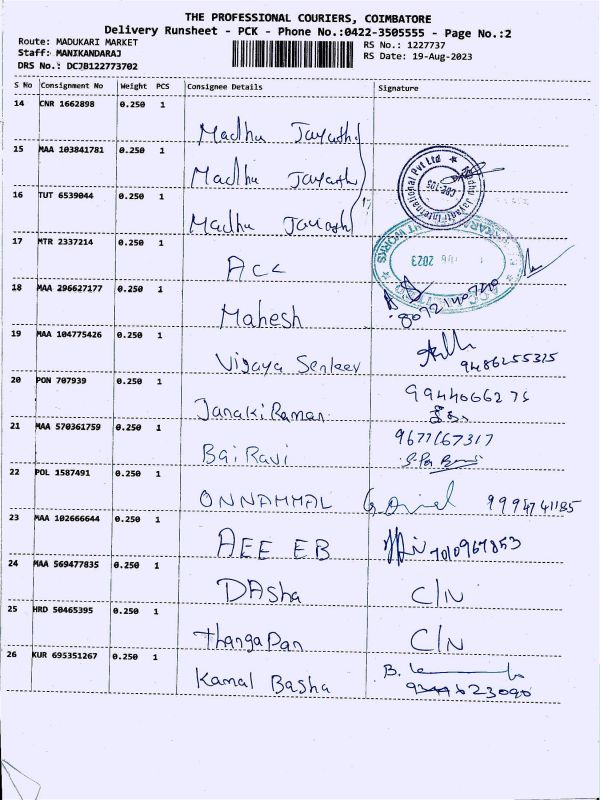 THE PROFESSIONAL COURIERS, COIMBATORE
Delivery Runsheet - PCK - Phone No.:0422-3505555 - Page No.:2
Route: MADUKARI MARKET RS No.: 1227737
Staff: MANIKANDARAJ RS Date: 19-Aug-2023
DRS No.: DCJB122773702
S No Consignment No Weight PCS Consignee Details Signature
14 CNR 1662898 0.250 1 Madhu Jayathi
15 MAA 103841781 0.250 1 Madhu Jayathi
16 TUT 6539044 0.250 1 Madhu Jayathi
17 MTR 2337214 0.250 1 ACC
18 MAA 296627177 0.250 1 Mahesh
19 MAA 104775426 0.250 1 Vijaya 9486255325
20 PON 707939 0.250 1 JanakiRaman 9944066275
21 MAA 570361759 0.250 1 BaiRavi 9677167317
22 POL 1587491 0.250 1 ONNAMMAL 9994741185
23 MAA 102666644 0.250 1 AEE EB 7010967853
24 MAA 569477835 0.250 1 DAsha C/N
25 HRD 50465395 0.250 1 ThangaPan C/N
26 KUR 695351267 0.250 1 Kamal Basha B.